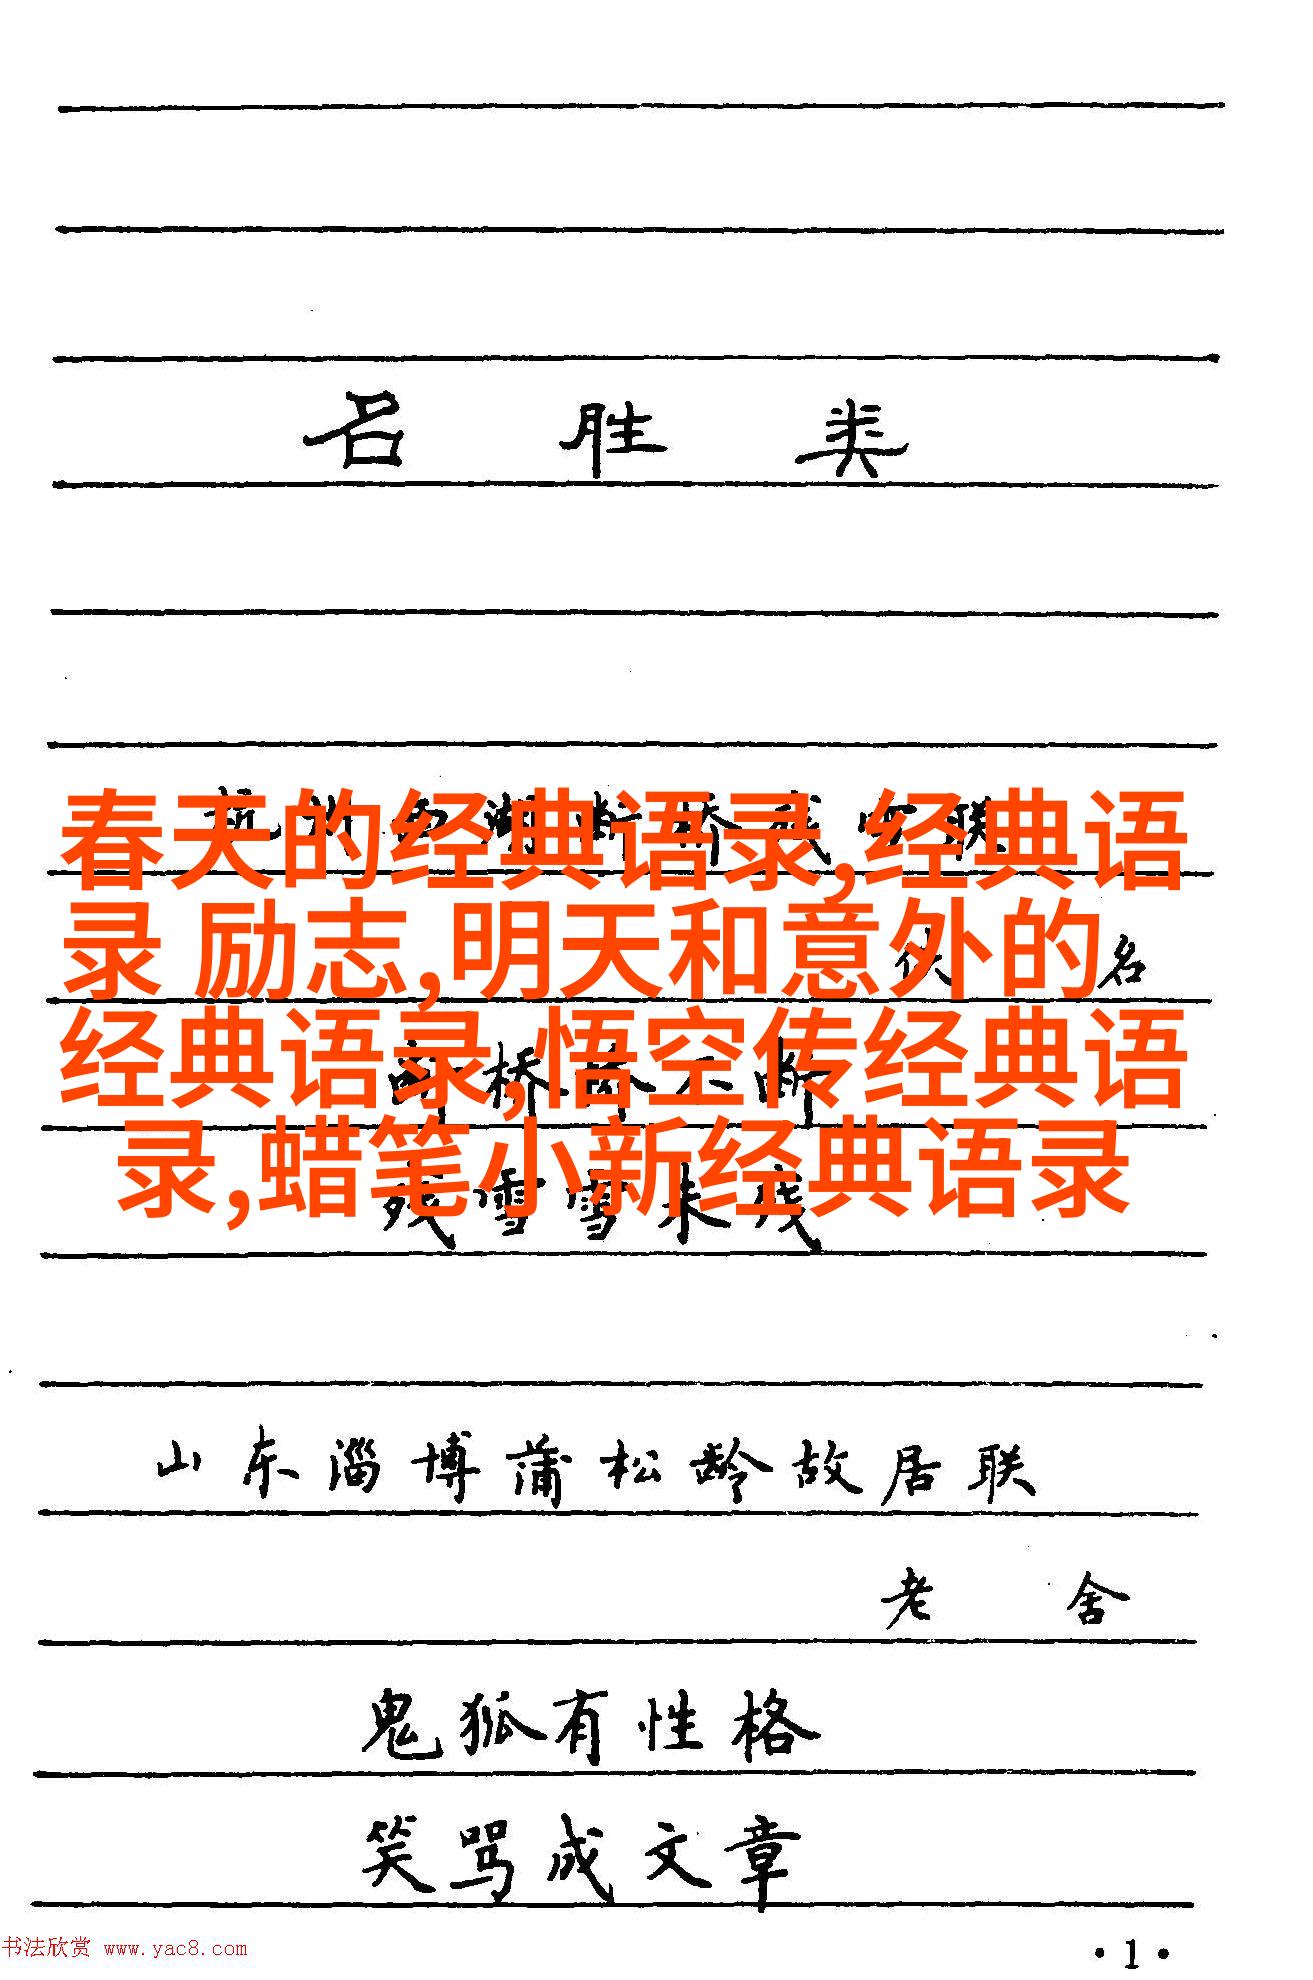 名胜类
杭州西湖断桥残雪联
春天的经典语录,经典语
录 励志,明天和意外的
佚名
经典语录,悟空传经典语
断桥桥不断
录,蜡笔小新经典语录
残雪雪未残
山东淄博蒲松龄故居联
老舍
鬼狐有性格
笑骂成文章
书法欣赏 www.yac8.com
·1·